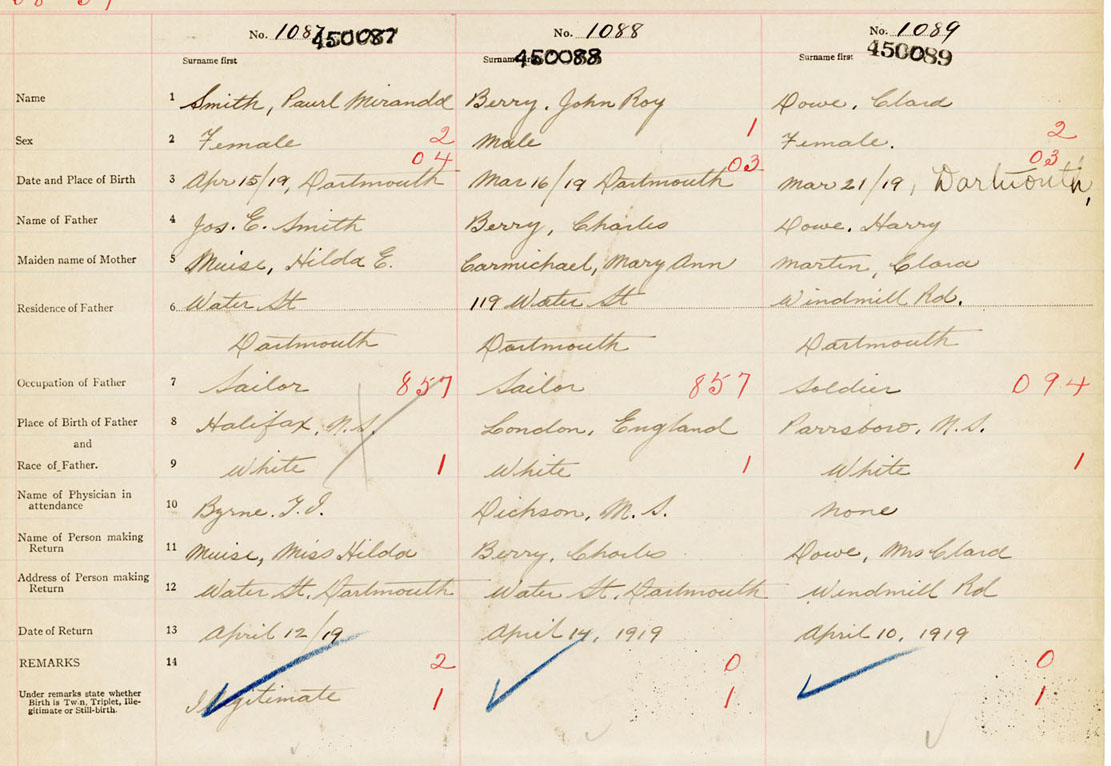 No. 1087 450087 No. 1088 No. 1089
Surname first 450088 450089
Surname first
Name 1 Smith, Paurl Miranda Berry, John Roy Dowe, Clara
Sex 2 Female 2 Male 1 Female. 2
04 03 03
Date and Place of Birth 3 Apr 15/19, Dartmouth Mar 16/19 Dartmouth Mar 21/19, Dartmouth,
Name of Father 4 Jos. E. Smith Berry, Charles Dowe, Harry
Maiden name of Mother 5 Muise, Hilda E. Carmichael, Mary Ann Martin, Clara
Residence of Father 6 Water St 119 Water St Windmill Rd.
Dartmouth Dartmouth Dartmouth
Occupation of Father 7 Sailor 857 Sailor 857 Soldier 094
Place of Birth of Father 8 Halifax, N.S. London, England Parrsboro, N.S.
and
Race of Father. 9 White 1 White 1 White 1
Name of Physician in
attendance 10 Byrne. Dickson, M. S. None
Name of Person making
Return 11 Muise, Miss Hilda Berry, Charles Dowe, Mrs Clara
Address of Person making
Return 12 Water St, Dartmouth Water St, Dartmouth Windmill Rd
Date of Return 13 April 12/19 April 14, 1919 April 10, 1919
REMARKS 14 2 0 0
Under remarks state whether
Birth is Twin, Triplet, Ille-
gitimate or Still-birth. Illegitimate 1 1 1